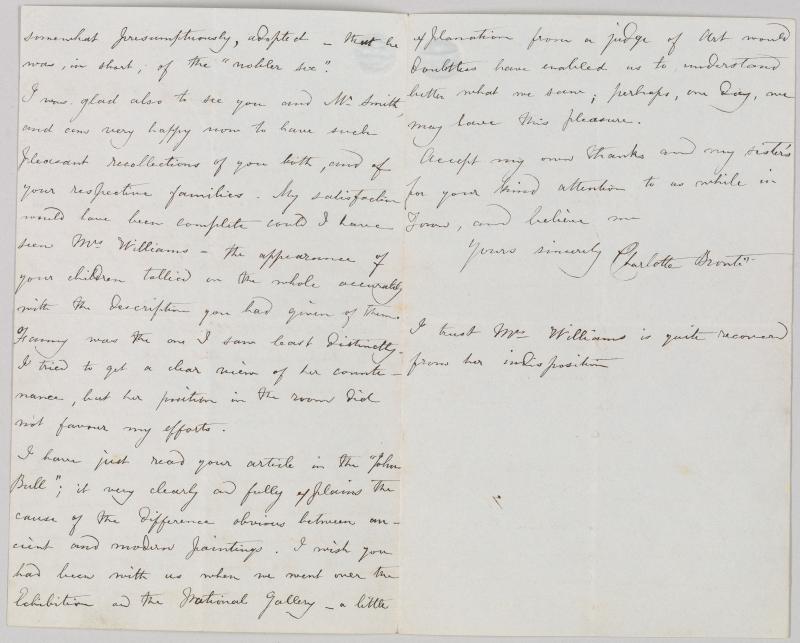 somewhat presumptuously, adopted – that he
was, in short, of the "nobler sex".
I was glad also to see you and Mr Smith,
and am very happy now to have such
pleasant recollections of you both, and of
your respective families. My satisfaction
would have been complete could I have
seen Mrs Williams – the appearance of
your children tallied on the whole accurately
with the description you had given of them.
Fanny was the one I saw least distinctly.
I tried to get a clear view of her counte-
nance, but her position in the room did
not favour my efforts.
I have just read your article in the "John
Bull"; it very clearly and fully explains the
cause of the difference obvious between an-
cient and modern paintings. I wish you
had been with us when we went over the
Exhibition and the National Gallery – a little
explanation from a judge of Art would
doubtless have enabled us to understand
better what we saw; perhaps, one day, we
may have this pleasure.
Accept my own thanks and my sister's
for your kind attention to us while in
Town, and believe me
Yours sincerely Charlotte Brontë
I trust Mrs Williams is quite recovered
from her indisposition